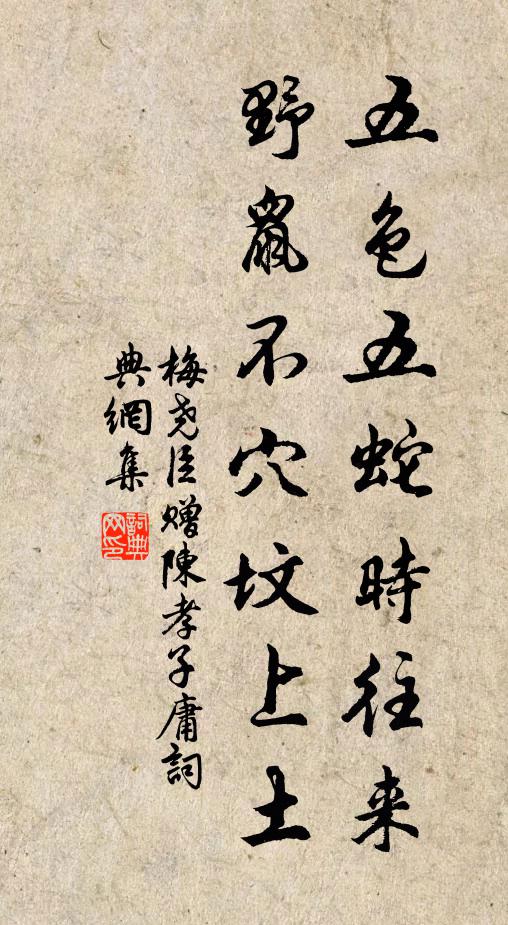 五色五蛇時往来
野鼠不穴坟上土
梅尭臣赠陳孝子庸詞
典網集
詞典网印